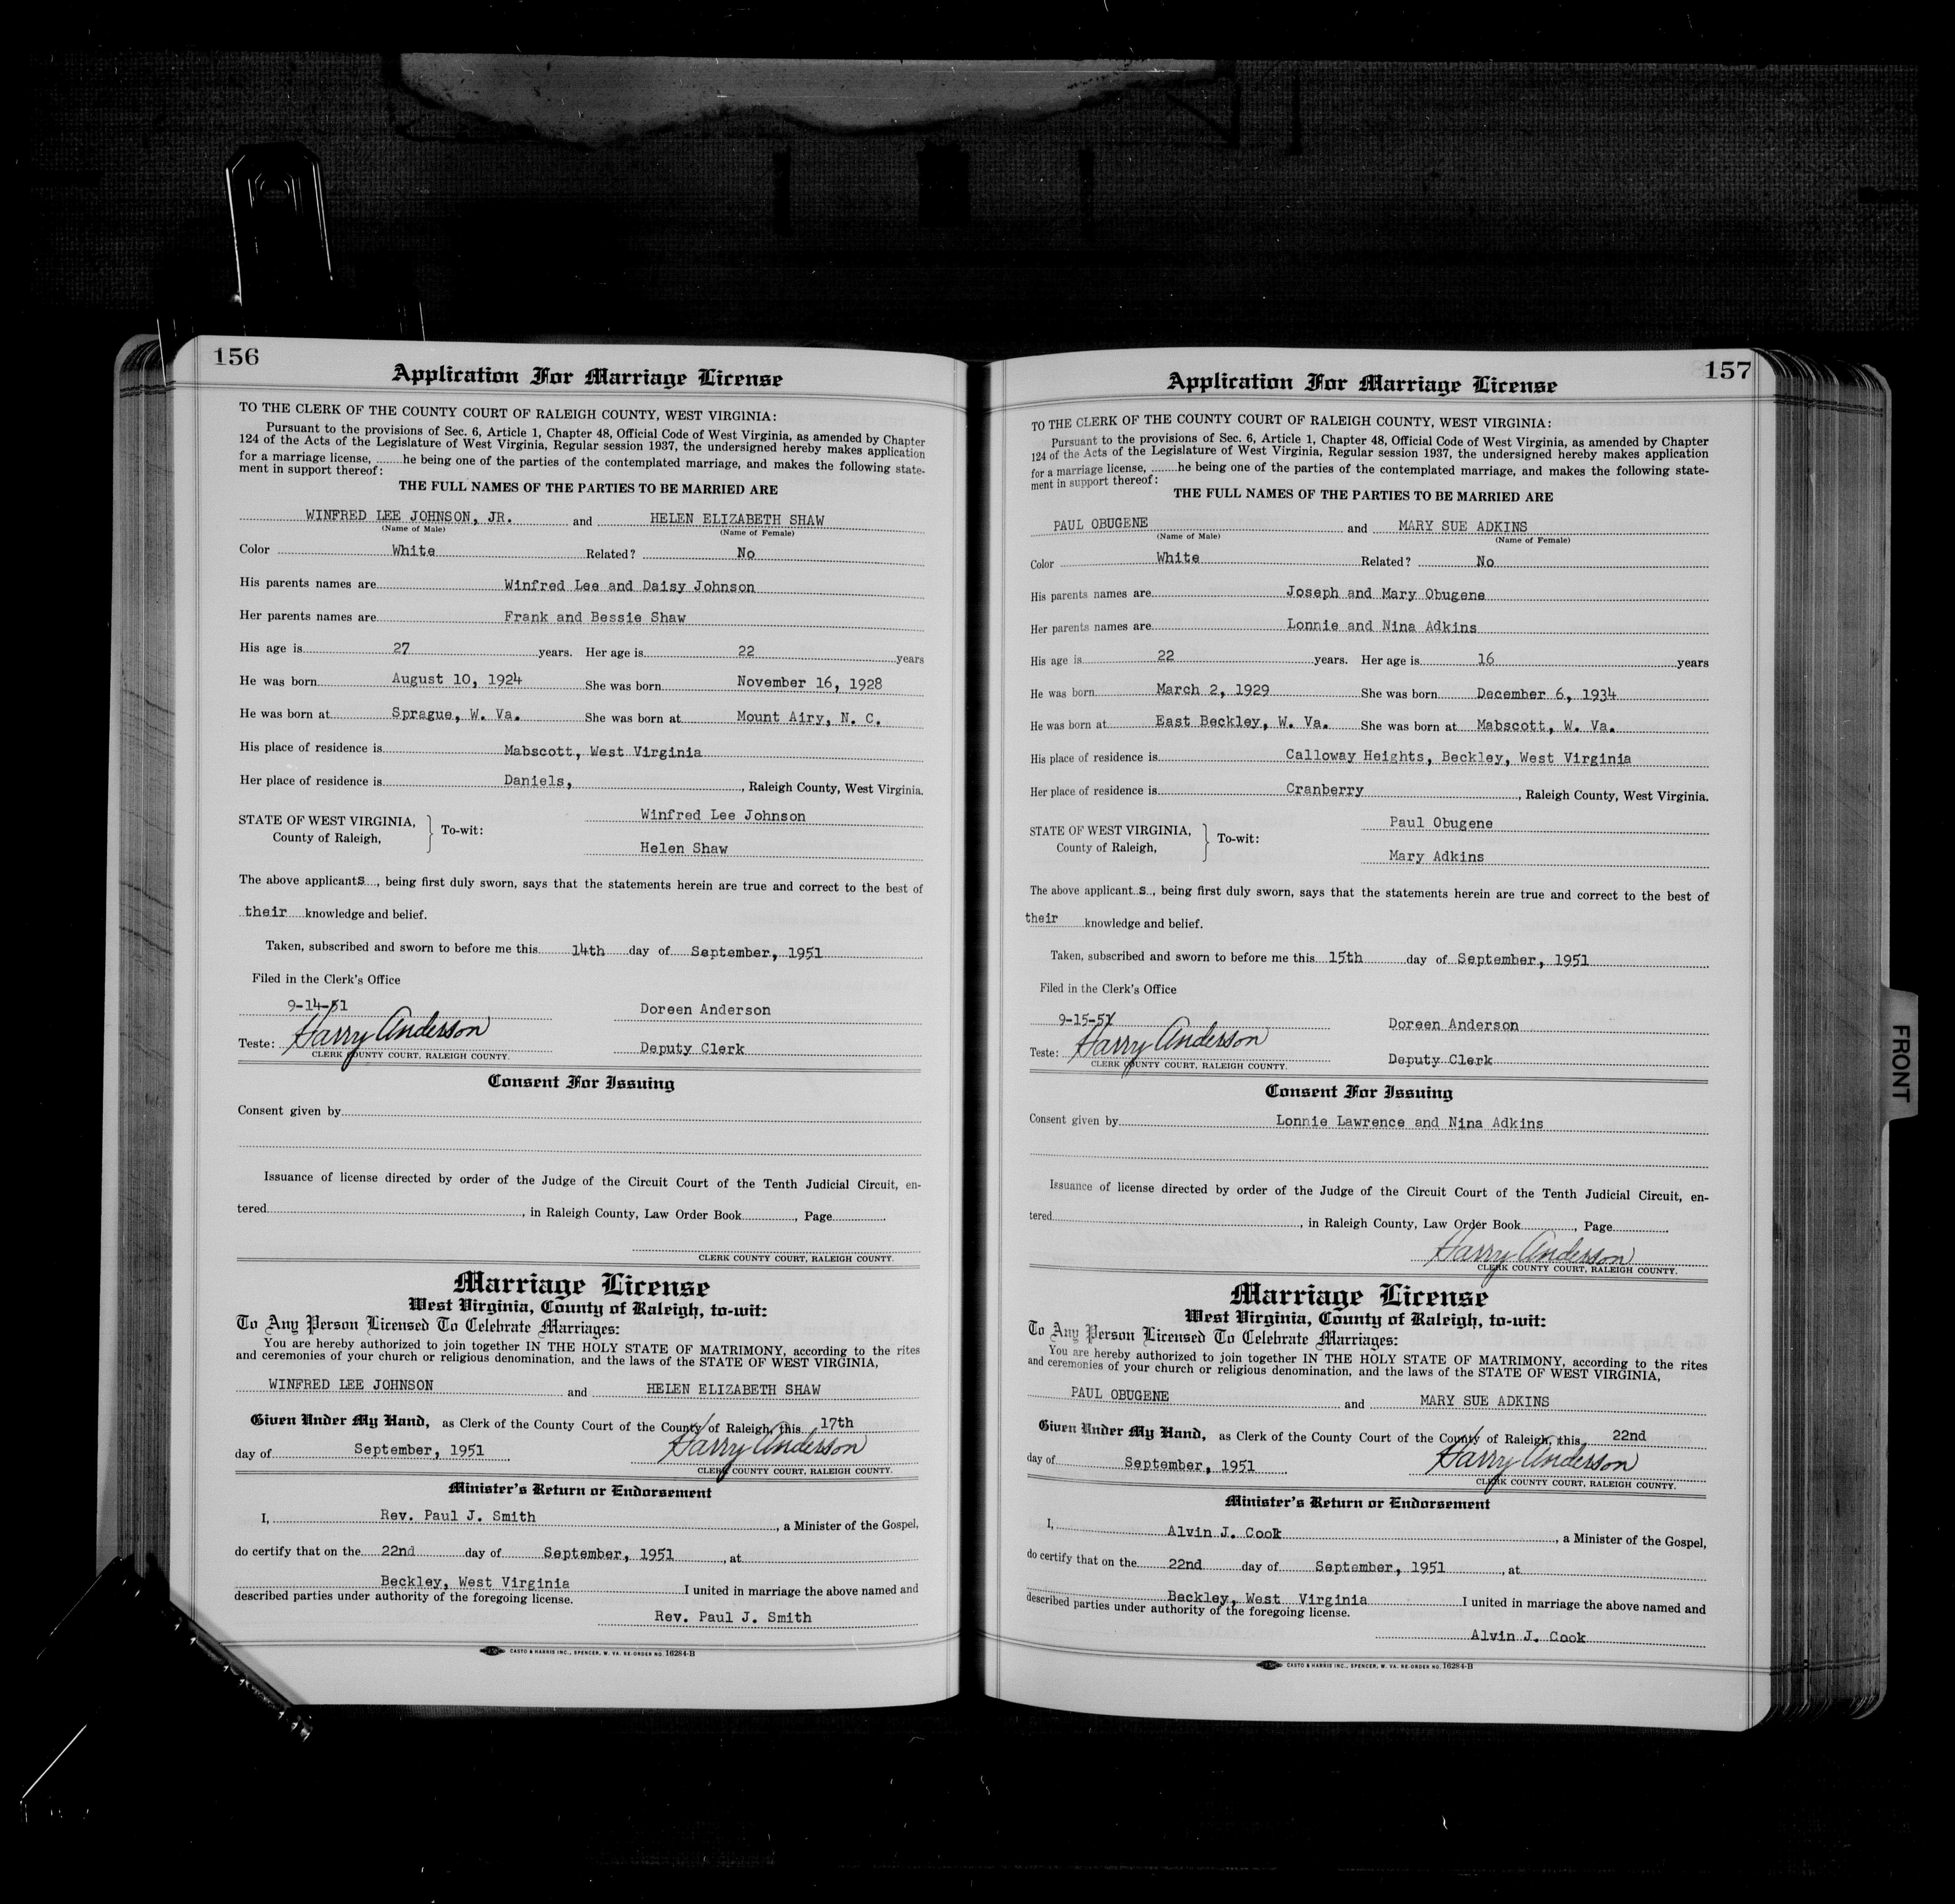 156
Application For Marriage License
TO THE CLERK OF THE COUNTY COURT OF RALEIGH COUNTY, WEST VIRGINIA:
Pursuant to the provisions of Sec. 6, Article 1, Chapter 48, Official Code of West Virginia, as amended by Chapter
124 of the Acts of the Legislature of West Virginia, Regular session 1937, the undersigned hereby makes application
for a marriage license, ........he being one of the parties of the contemplated marriage, and makes the following state-
ment in support thereof:
THE FULL NAMES OF THE PARTIES TO BE MARRIED ARE
WINFRED LEE JOHNSON, JR. and HELEN ELIZABETH SHAW
(Name of Male) (Name of Female)
Color White Related? No
His parents names are Winfred Lee and Daisy Johnson
Her parents names are Frank and Bessie Shaw
His age is 27 years. Her age is 22 years
He was born August 10, 1924 She was born November 16, 1928
He was born at Sprague, W. Va. She was born at Mount Airy, N. C.
His place of residence is Mabscott, West Virginia
Her place of residence is Daniels, , Raleigh County, West Virginia.
Winfred Lee Johnson
STATE OF WEST VIRGINIA, To-wit:
County of Raleigh,
Helen Shaw
The above applicants, being first duly sworn, says that the statements herein are true and correct to the best of
their knowledge and belief.
Taken, subscribed and sworn to before me this 14th day of September, 1951
Filed in the Clerk's Office
9-14-51 Doreen Anderson
Teste: Harry Anderson Deputy Clerk
CLERK COUNTY COURT, RALEIGH COUNTY.
Consent For Issuing
Consent given by
Issuance of license directed by order of the Judge of the Circuit Court of the Tenth Judicial Circuit, en-
tered , in Raleigh County, Law Order Book , Page
CLERK COUNTY COURT, RALEIGH COUNTY.
Marriage License
West Virginia, County of Raleigh, to-wit:
To Any Person Licensed To Celebrate Marriages:
You are hereby authorized to join together IN THE HOLY STATE OF MATRIMONY, according to the rites
and ceremonies of your church or religious denomination, and the laws of the STATE OF WEST VIRGINIA,
WINFRED LEE JOHNSON and HELEN ELIZABETH SHAW
Given Under My Hand, as Clerk of the County Court of the County of Raleigh, this 17th
day of September, 1951 Harry Anderson
CLERK COUNTY COURT, RALEIGH COUNTY.
Minister's Return or Endorsement
I, Rev. Paul J. Smith , a Minister of the Gospel,
do certify that on the 22nd day of September, 1951 , at
Beckley, West Virginia I united in marriage the above named and
described parties under authority of the foregoing license.
Rev. Paul J. Smith
CASTO & HARRIS INC., SPENCER, W. VA. RE-ORDER NO. 16284-B
157
Application For Marriage License
TO THE CLERK OF THE COUNTY COURT OF RALEIGH COUNTY, WEST VIRGINIA:
Pursuant to the provisions of Sec. 6, Article 1, Chapter 48, Official Code of West Virginia, as amended by Chapter
124 of the Acts of the Legislature of West Virginia, Regular session 1937, the undersigned hereby makes application
for a marriage license, ........he being one of the parties of the contemplated marriage, and makes the following state-
ment in support thereof:
THE FULL NAMES OF THE PARTIES TO BE MARRIED ARE
PAUL OBUGENE and MARY SUE ADKINS
(Name of Male) (Name of Female)
Color White Related? No
His parents names are Joseph and Mary Obugene
Her parents names are Lonnie and Nina Adkins
His age is 22 years. Her age is 16 years
He was born March 2, 1929 She was born December 6, 1934
He was born at East Beckley, W. Va. She was born at Mabscott, W. Va.
His place of residence is Calloway Heights, Beckley, West Virginia
Her place of residence is Cranberry , Raleigh County, West Virginia.
Paul Obugene
STATE OF WEST VIRGINIA, To-wit:
County of Raleigh,
Mary Adkins
The above applicant s , being first duly sworn, says that the statements herein are true and correct to the best of
their knowledge and belief.
Taken, subscribed and sworn to before me this 15th day of September, 1951
Filed in the Clerk's Office
9-15-51 Doreen Anderson
Teste: Harry Anderson Deputy Clerk
CLERK COUNTY COURT, RALEIGH COUNTY.
Consent For Issuing
Consent given by Lonnie Lawrence and Nina Adkins
Issuance of license directed by order of the Judge of the Circuit Court of the Tenth Judicial Circuit, en-
tered , in Raleigh County, Law Order Book , Page
Harry Anderson
CLERK COUNTY COURT, RALEIGH COUNTY.
Marriage License
West Virginia, County of Raleigh, to-wit:
To Any Person Licensed To Celebrate Marriages:
You are hereby authorized to join together IN THE HOLY STATE OF MATRIMONY, according to the rites
and ceremonies of your church or religious denomination, and the laws of the STATE OF WEST VIRGINIA,
PAUL OBUGENE and MARY SUE ADKINS
Given Under My Hand, as Clerk of the County Court of the County of Raleigh, this 22nd
day of September, 1951 Harry Anderson
CLERK COUNTY COURT, RALEIGH COUNTY.
Minister's Return or Endorsement
I, Alvin J. Cook , a Minister of the Gospel,
do certify that on the 22nd day of September, 1951 , at
Beckley, West Virginia I united in marriage the above named and
described parties under authority of the foregoing license.
Alvin J. Cook
CASTO & HARRIS INC., SPENCER, W. VA. RE-ORDER NO. 16284-B
FRONT